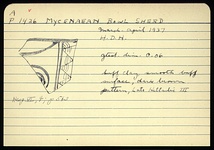 A
P 1436 MYCENAEAN BOWL SHERD
March-April 1937
H.D.N.
gtest. dim. 0.06
buff clay, smooth buff
surface; dark brown
pattern, Late Helladic III